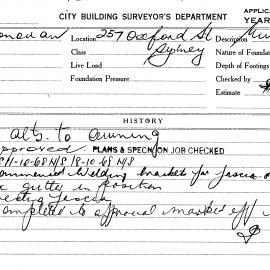 CITY BUILDING SURVEYOR'S DEPARTMENT
APPLICA
YEAR
Location 257 Oxford St Description
Class Sydney Nature of Foundat
Live Load Depth of Footings
Foundation Pressure Checked by
Estimate
HISTORY
Alts. to Awning
Approved. PLANS & SPECN ON JOB CHECKED
11-10-68 N/S 18-10-68 N/S
Commenced welding brackets for fascia
gutter in position
fascia
Completed to approval marked off